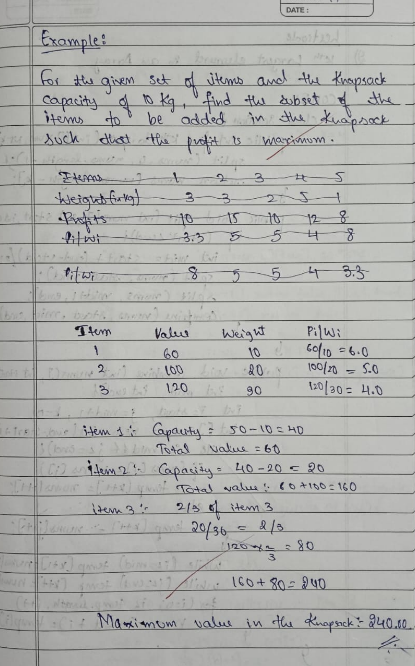 DATE :
Example:
For the given set of items and the Knapsack
capacity of 10 Kg, find the subset of the
items to be added in the Knapsack
such that the profit is maximum.
Items 1 2 3 4 5
Weight(in kg) 3 3 2 5 1
Profits 10 15 10 12 8
Pi/Wi 3.3 5 5 4 8
Pi/Wi 8 5 5 4 3.3
Item Value Weight Pi/Wi
1 60 10 60/10 = 6.0
2 100 20 100/20 = 5.0
3 120 90 120/30 = 4.0
item 1 :- Capacity = 50-10=40
Total value = 60
item 2 :- Capacity = 40-20 = 20
Total value :- 60+100=160
item 3 :- 2/3 of item 3
20/30 = 2/3
120 × 2/3 = 80
160 + 80 = 240
Maximum value in the Knapsack :- 240.00